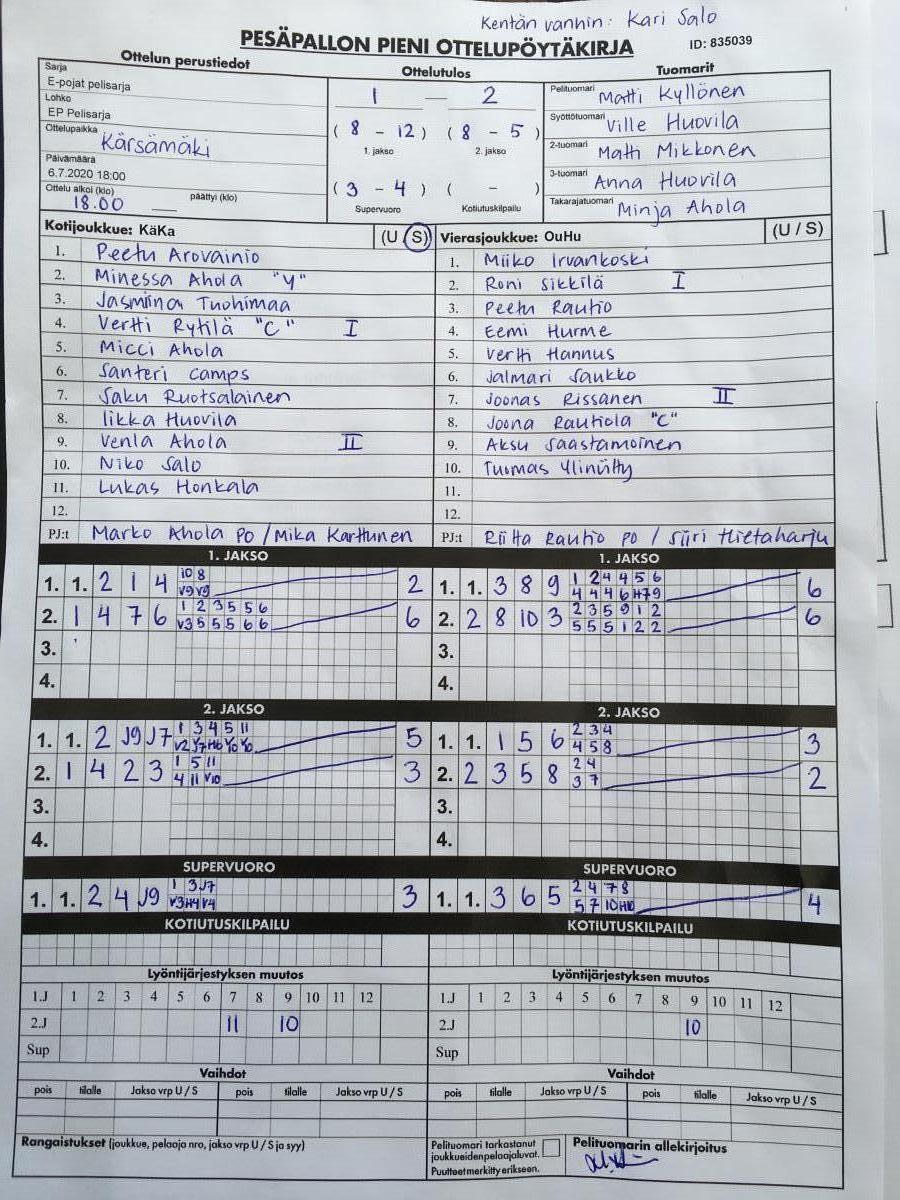 Kentän vanhin: Kari Salo
PESÄPALLON PIENI OTTELUPÖYTÄKIRJA ID: 835039
Ottelun perustiedot Ottelutulos Tuomarit
Sarja
E-pojat pelisarja
Lohko
EP Pelisarja
Ottelupaikka
Kärsämäki
Päivämäärä
6.7.2020 18:00
Ottelu alkoi (klo) päättyi (klo)
18.00
1 — 2
( 8 - 12 ) ( 8 - 5 )
1. jakso 2. jakso
( 3 - 4 ) ( - )
Supervuoro Kotiutuskilpailu
Pelituomari Matti Kyllönen
Syöttötuomari Ville Huovila
2-tuomari Matti Mikkonen
3-tuomari Anna Huovila
Takarajatuomari Minja Ahola
Kotijoukkue: KäKa (U / S)
1. Peetu Arovainio
2. Minessa Ahola "V"
3. Jasmiina Tuohimaa
4. Vertti Rytilä "C" I
5. Micci Ahola
6. Santeri Camps
7. Saku Ruotsalainen
8. Iikka Huovila
9. Venla Ahola II
10. Niko Salo
11. Lukas Honkala
12.
PJ:t Marko Ahola PO / Mika Karttunen
Vierasjoukkue: OuHu (U / S)
1. Miiko Irvankoski
2. Roni Sikkilä I
3. Peetu Rautio
4. Eemi Hurme
5. Vertti Hannus
6. Jalmari Saukko
7. Joonas Rissanen II
8. Joona Rautiola "C"
9. Aksu Saastamoinen
10. Tuomas Ylinütty
11.
12.
PJ:t Riitta Rautio PO / Siiri Hietaharju
1. JAKSO 1. JAKSO
1. 1. 2 1 4 10 8 2
V9 V9
2. 1 4 7 6 1 2 3 5 5 6 6
V3 5 5 5 6 6
3.
4.
1. 1. 3 8 9 1 2 4 4 5 6 6
4 4 4 6 H7 9
2. 2 8 10 3 2 3 5 9 1 2 6
5 5 5 1 2 2
3.
4.
2. JAKSO 2. JAKSO
1. 1. 2 J9 J7 1 3 4 5 11 5
2. 1 4 2 3 1 5 11 3
4 11 V10
3.
4.
1. 1. 1 5 6 2 3 4 3
4 5 8
2. 2 3 5 8 2 4 2
3 7
3.
4.
SUPERVUORO SUPERVUORO
1. 1. 2 4 J9 1 3 J7 3
V3 H4 V4
1. 1. 3 6 5 2 4 7 8 4
5 7 10 H10
KOTIUTUSKILPAILU KOTIUTUSKILPAILU
Lyöntijärjestyksen muutos Lyöntijärjestyksen muutos
1.J 1 2 3 4 5 6 7 8 9 10 11 12 1.J 1 2 3 4 5 6 7 8 9 10 11 12
2.J 11 10 2.J 10
Sup Sup
Vaihdot Vaihdot
pois tilalle Jakso vrp U / S pois tilalle Jakso vrp U / S pois tilalle Jakso vrp U / S pois tilalle Jakso vrp U / S
Rangaistukset (joukkue, pelaaja nro, jakso vrp U / S ja syy)
Pelituomari tarkastanut
joukkueiden pelaajaluvat.
Puutteet merkitty erikseen.
Pelituomarin allekirjoitus